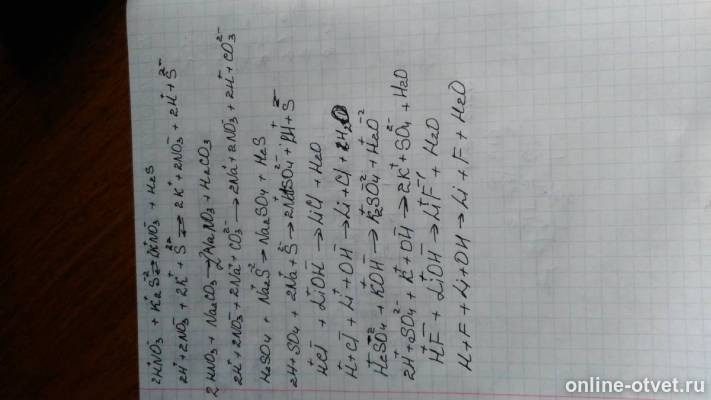 2HNO₃ + K₂S ⇄ 2KNO₃ + H₂S
2H⁺ + 2NO₃⁻ + 2K⁺ + S²⁻ ⇄ 2K⁺ + 2NO₃⁻ + 2H⁺ + S²⁻
2HNO₃ + Na₂CO₃ → 2NaNO₃ + H₂CO₃
2H⁺ + 2NO₃⁻ + 2Na⁺ + CO₃²⁻ → 2Na⁺ + 2NO₃⁻ + 2H⁺ + CO₃²⁻
H₂SO₄ + Na₂S⁻² → Na₂SO₄ + H₂S
2H + SO₄ + 2Na⁺ + S²⁻ → 2Na⁺ + SO₄²⁻ + 2H⁺ + S²⁻
H⁺Cl⁻ + Li⁺OH⁻ → LiCl + H₂O
H⁺ + Cl⁻ + Li⁺ + OH⁻ → Li⁺ + Cl⁻ + H₂O
H₂⁺SO₄⁻² + K⁺OH⁻ → K₂⁺SO₄⁻² + H₂⁺O⁻²
2H⁺ + SO₄²⁻ + K⁺ + OH⁻ → 2K⁺ + SO₄²⁻ + H₂O
H⁺F⁻ + Li⁺OH⁻ → Li⁺F⁻¹ + H₂O
H + F + Li + OH → Li + F + H₂O
online-otvet.ru